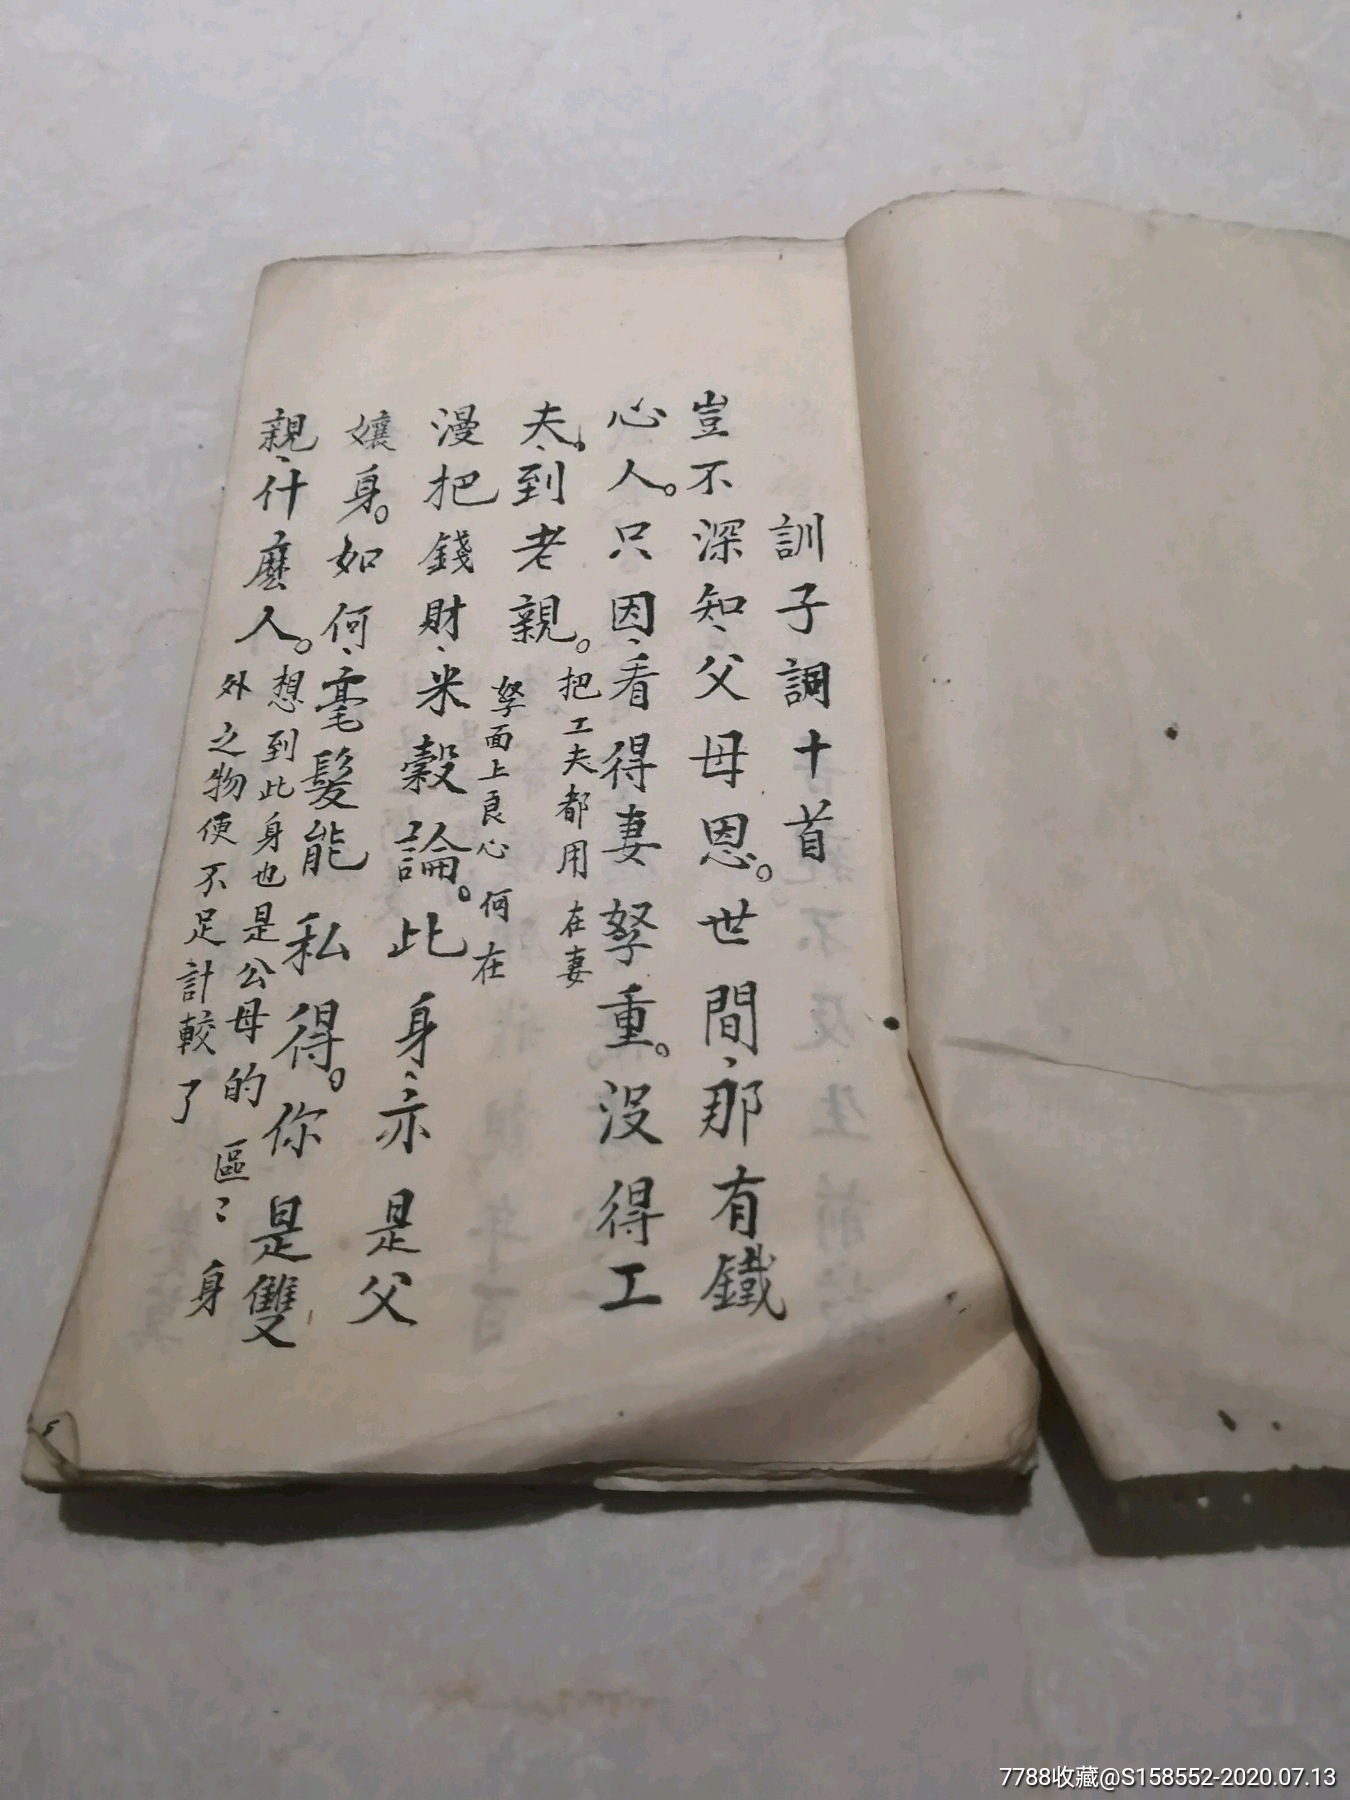 訓子調十首
豈不深知、父母恩。世間、那有鐵
心人。只因、看得妻孥重。沒得工
夫、到老親。把工夫都用在妻
孥面上良心何在
漫把錢財、米穀論。此身、亦是父
孃身。如何、毫髮能私得。你是雙
親、什麼人。想到此身也是公母的區〻身
外之物便不足計較了
7788收藏@S158552-2020.07.13